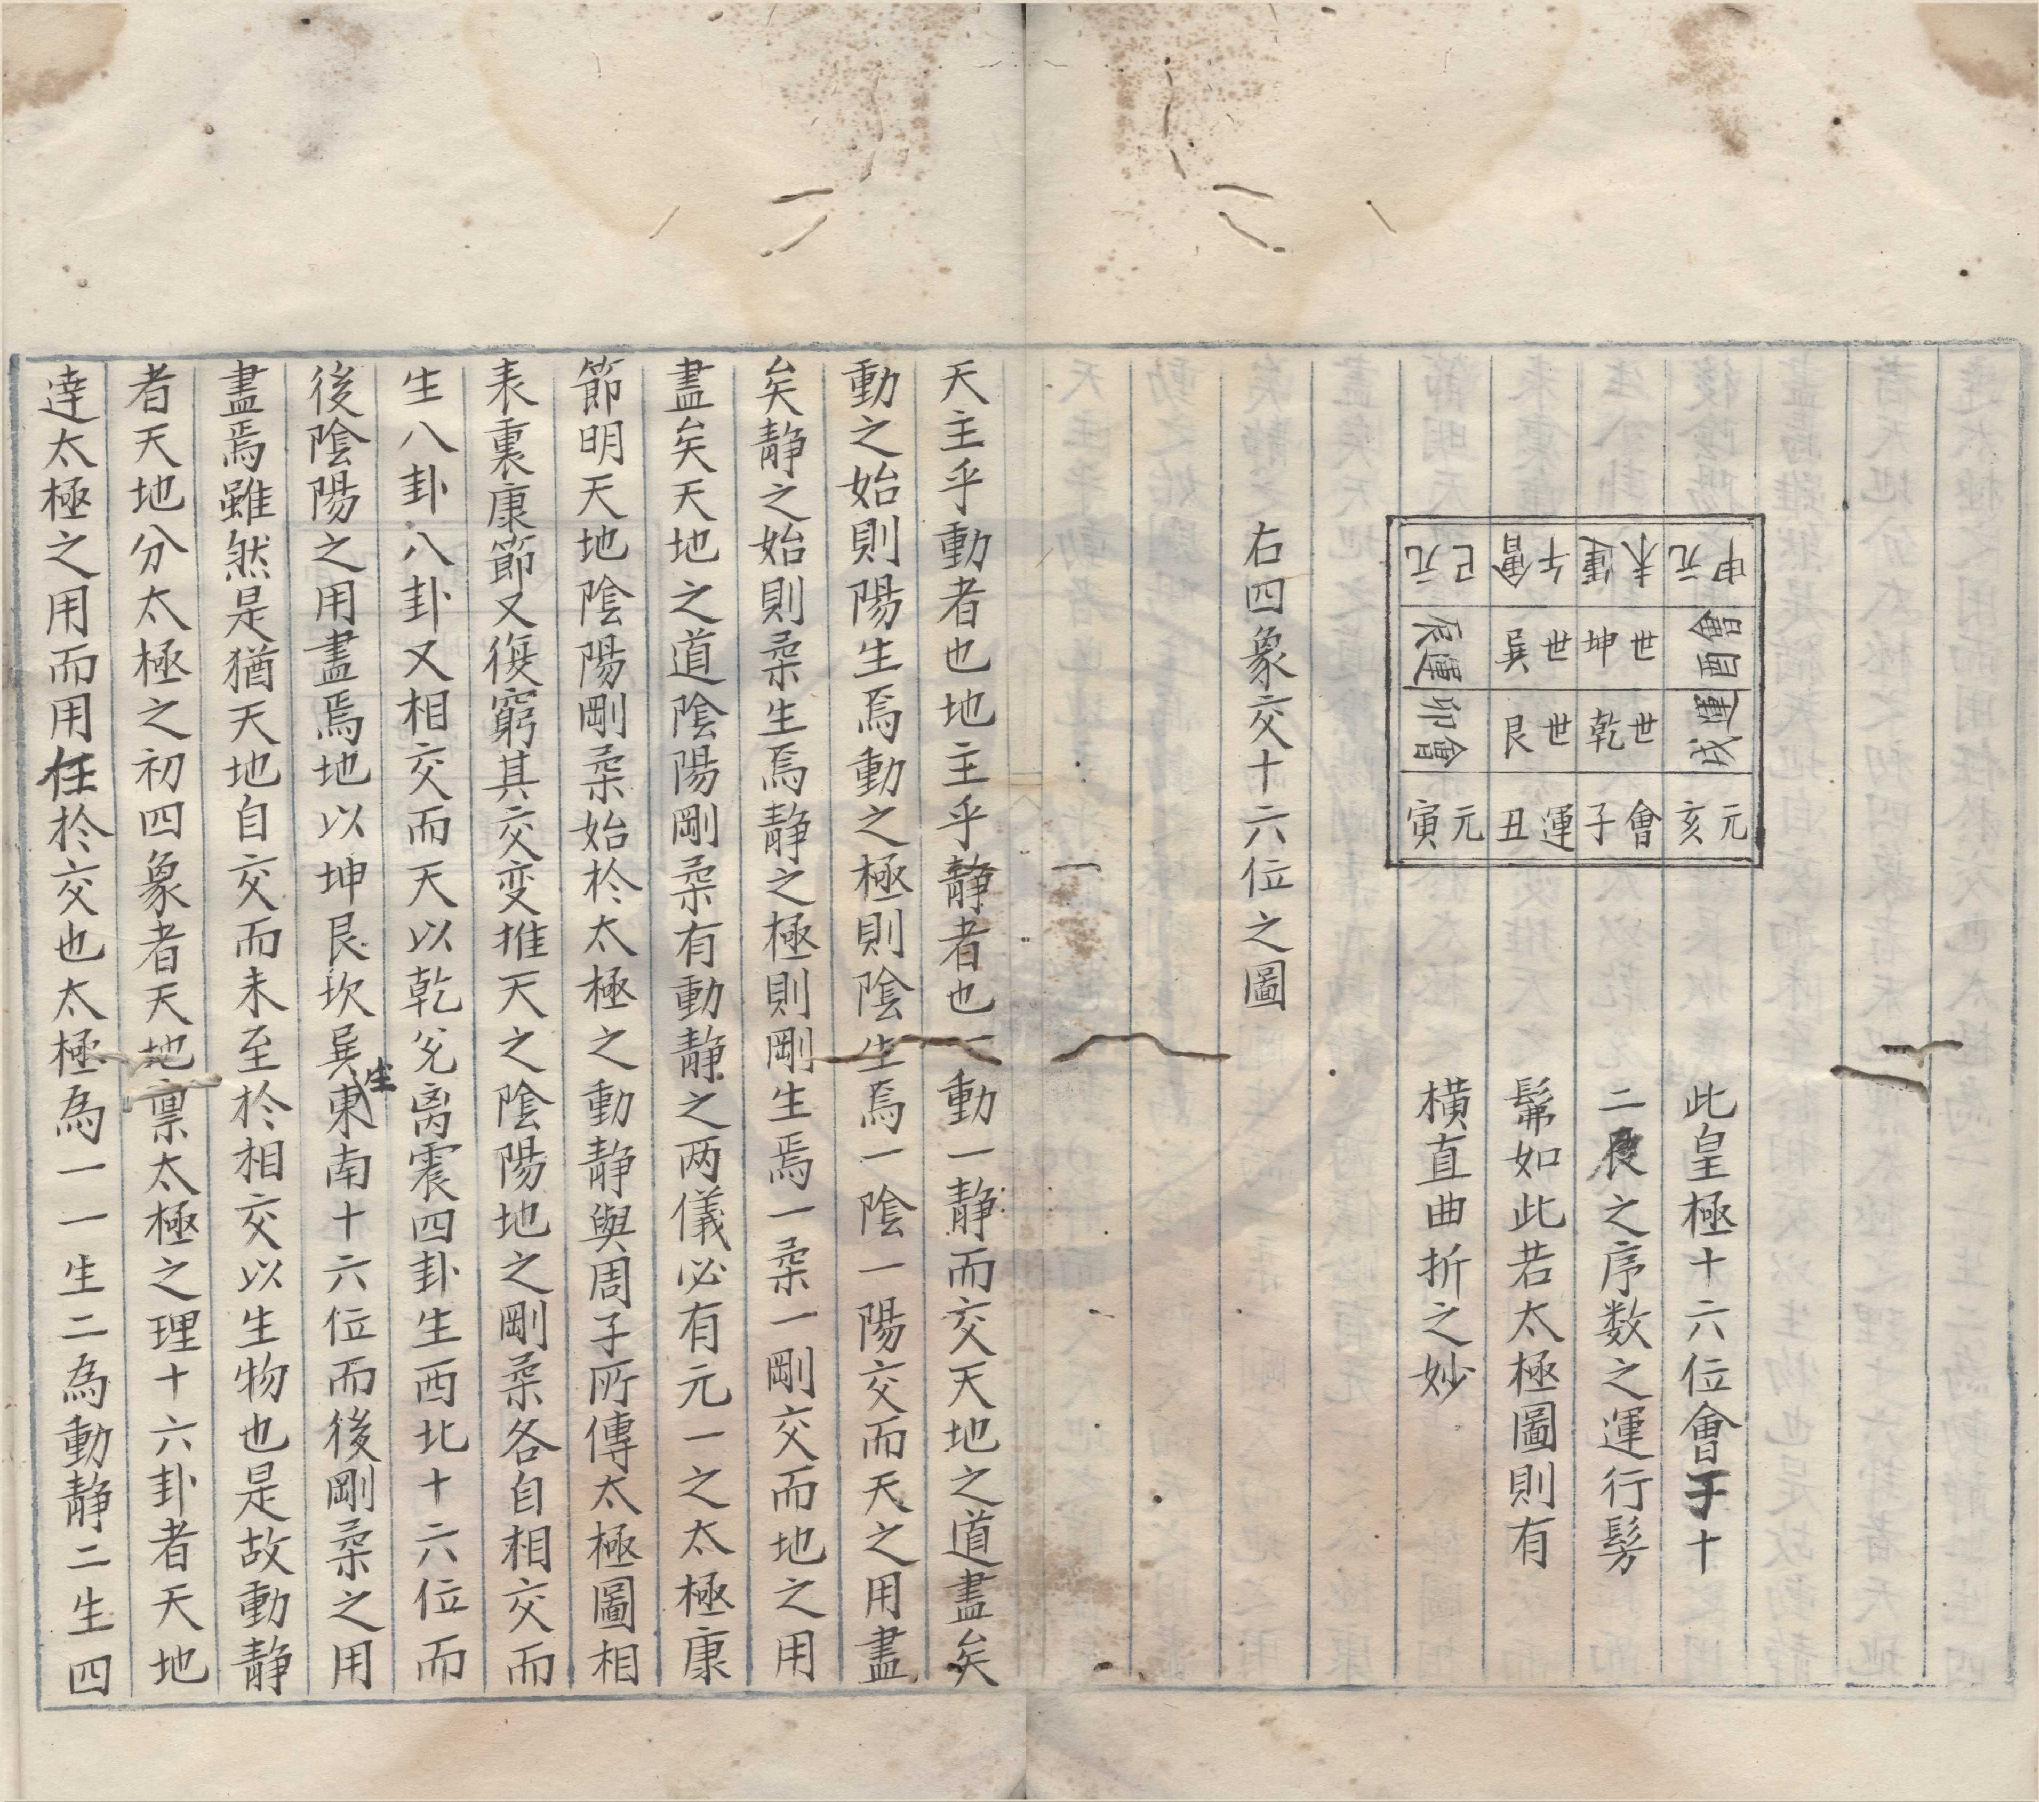 申元 未運 午會 巳元
酉會 坤世 巽世 辰運
戌運 乾世 艮世 卯會
亥元 子會 丑運 寅元
此皇極十六位會于十
二辰之序数之運行髣
髴如此若太極圖則有
橫直曲折之妙
右四象交十六位之圖
天主乎動者也地主乎静者也一動一静而交天地之道盡矣
動之始則陽生焉動之極則陰生焉一陰一陽交而天之用盡
矣静之始則柔生焉静之極則剛生焉一柔一剛交而地之用
盡矣天地之道陰陽剛柔有動静之两儀必有元一之太極康
節明天地陰陽剛柔始於太極之動静與周子所傳太極圖相
表裏康節又復窮其交变推天之陰陽地之剛柔各自相交而
生八卦八卦又相交而天以乾兊离震四卦生西北十六位而
後陰陽之用盡焉地以坤艮坎巽生東南十六位而後剛柔之用
盡焉雖然是猶天地自交而未至於相交以生物也是故動静
者天地分太極之初四象者天地禀太極之理十六卦者天地
達太極之用而用任於交也太極為一一生二為動静二生四